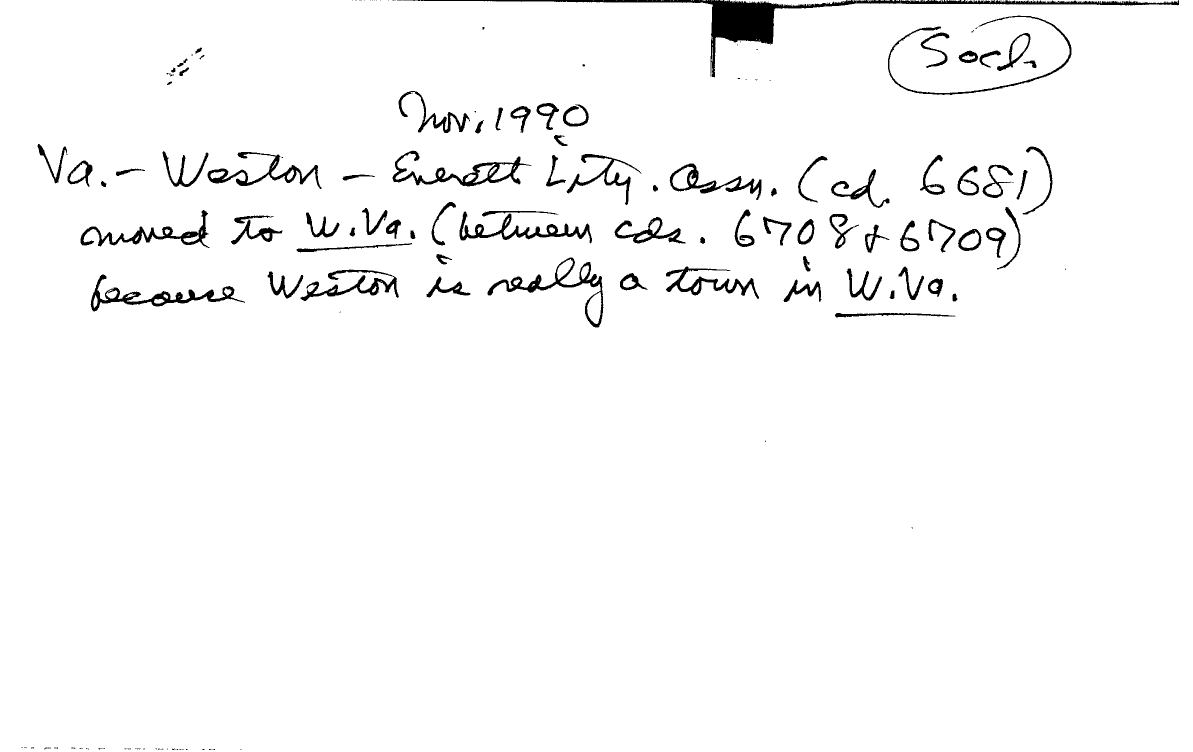 Soch.
Nov. 1990
Va. - Weston - Everett Lity. Assn. (cd. 6681)
moved to W.Va. (between cds. 6708 & 6709)
because Weston is really a town in W.Va.